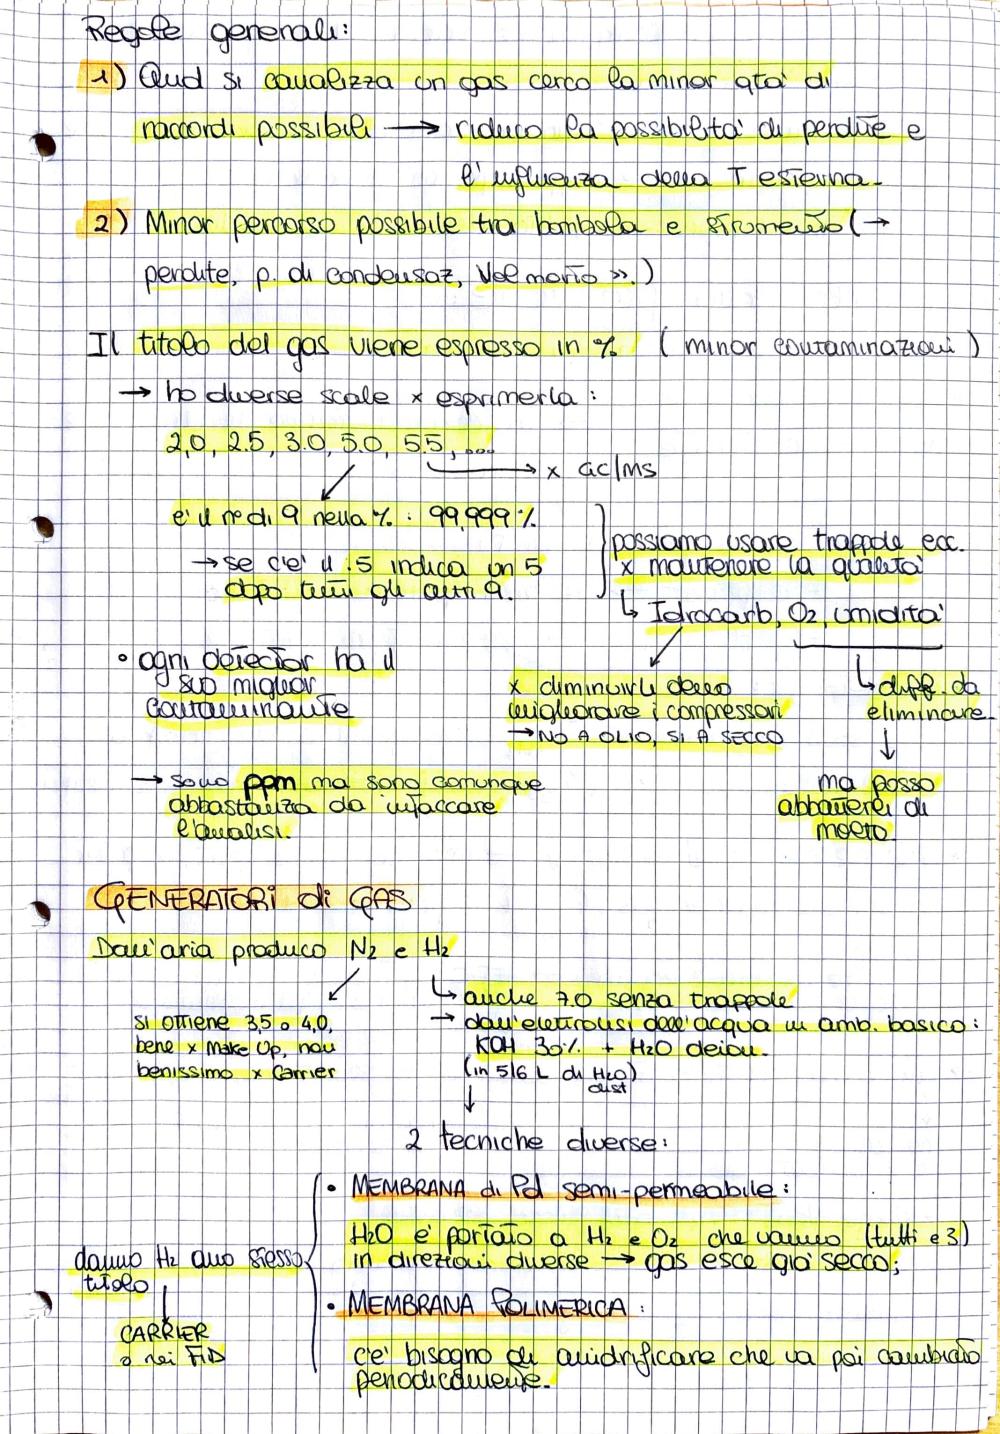 Regole generali:
1) Qud si canalizza un gas cerco la minor qtà di
raccordi possibili → riduco la possibilità di perdite e
l'influenza della T esterna.
2) Minor percorso possibile tra bombola e strumento (→
perdite, p. di condensaz, Vol morto >>.)
Il titolo del gas viene espresso in % (minor contaminazioni)
→ ho diverse scale x esprimerla:
2,0, 2.5, 3.0, 5.0, 5.5, ....
→ x GC/MS
è il n° di 9 nella % : 99,999%
→ se c'è il .5 indica un 5
dopo tutti gli altri 9.
possiamo usare trappole ecc.
x mantenere la qualità
↳ Idrocarb, O2, umidità
• ogni detector ha il
suo miglior
contaminante
x diminuirli devo
migliorare i compressori
→ NO A OLIO, SI A SECCO
↳ diff. da
eliminare
↓
ma posso
abbatterli di
molto
→ sono ppm ma sono comunque
abbastanza da intaccare
l'analisi.
GENERATORI di GAS
Dall'aria produco N2 e H2
↳ anche 7.0 senza trappole
→ dall'elettrolisi dell'acqua in amb. basico:
KOH 30% + H2O deion.
(in 5/6 L di H2O)
dist
si ottiene 3,5 o 4,0,
bene x Make Up, non
benissimo x Carrier
2 tecniche diverse:
• MEMBRANA di Pd semi-permeabile:
H2O è portato a H2 e O2 che vanno (tutti e 3)
in direzioni diverse → gas esce già secco;
• MEMBRANA POLIMERICA:
c'è bisogno di anidrificare che va poi cambiato
periodicamente.
danno H2 allo stesso
titolo
↓
CARRIER
o nei FID